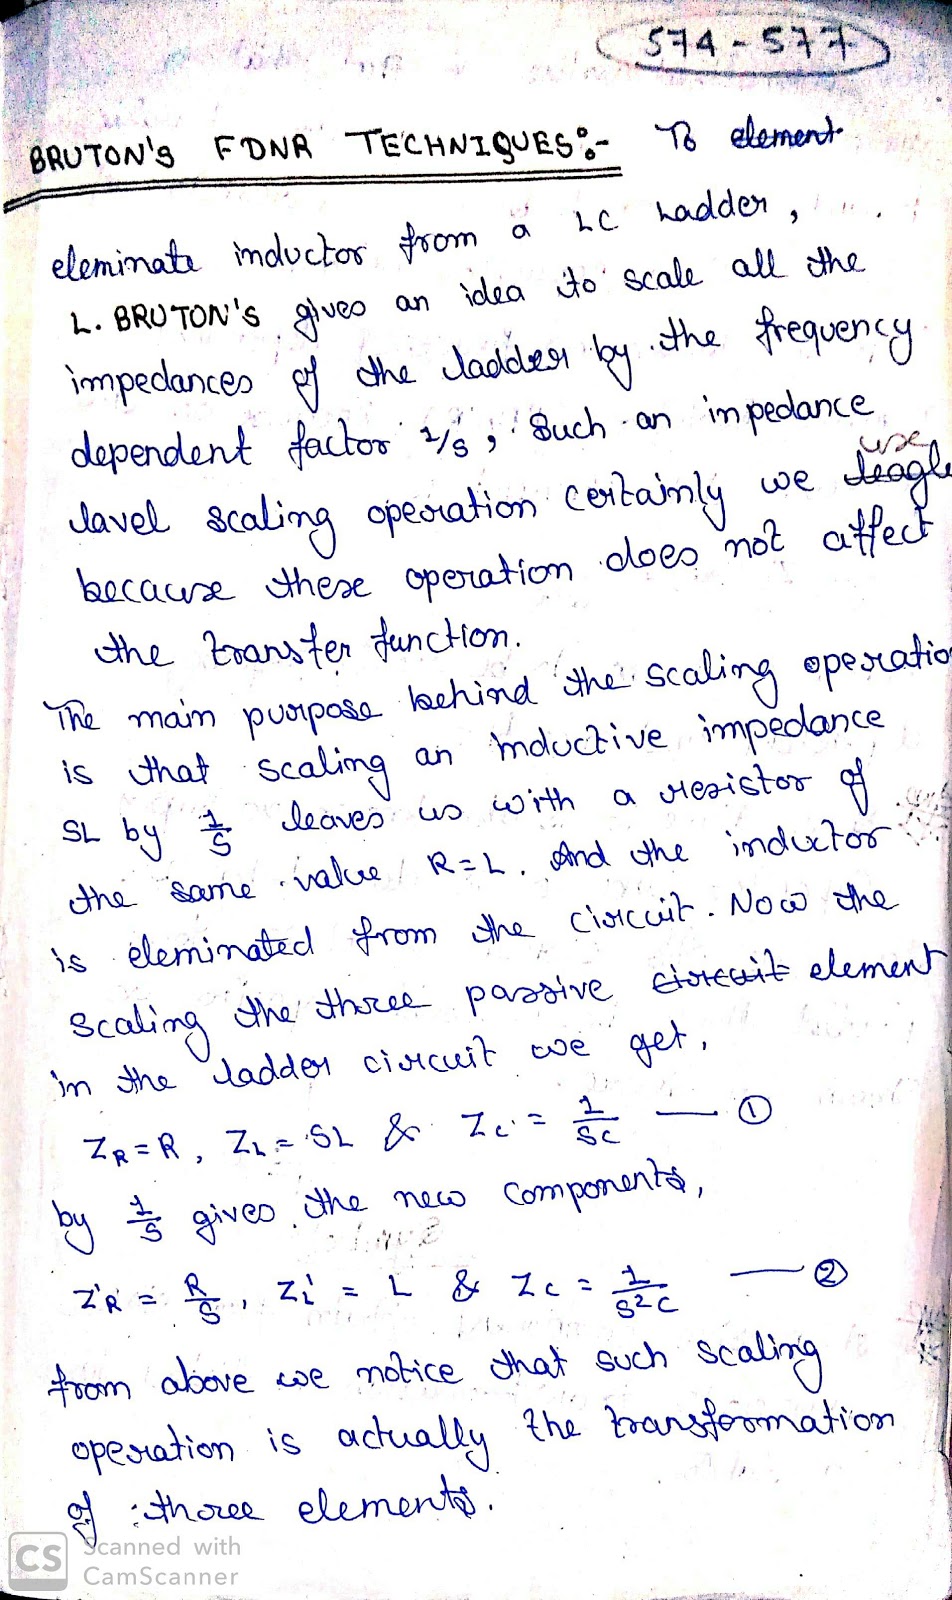 574-577
BRUTON'S FDNR TECHNIQUES:- To element
eleminate inductor from a LC Ladder,
L. BRUTON'S gives an idea to scale all the
impedances of the ladder by the frequency
dependent factor 1/s, Such an impedance
lavel scaling operation certainly we use
because these operation does not affect
the transfer function.
The main purpose behind the scaling operatio
is that scaling an inductive impedance
SL by 1/S leaves us with a resistor of
the same value R=L. And the inductor
is eleminated from the circuit. Now the
Scaling the three passive circuit element
in the ladder circuit we get,
Z_R=R, Z_L=SL & Z_C = 1/SC — ①
by 1/S gives the new Components,
Z'_R = R/S, Z'_L = L & Z_C = 1/S²C — ②
from above we notice that such scaling
operation is actually the transformation
of three elements.
CS Scanned with
CamScanner